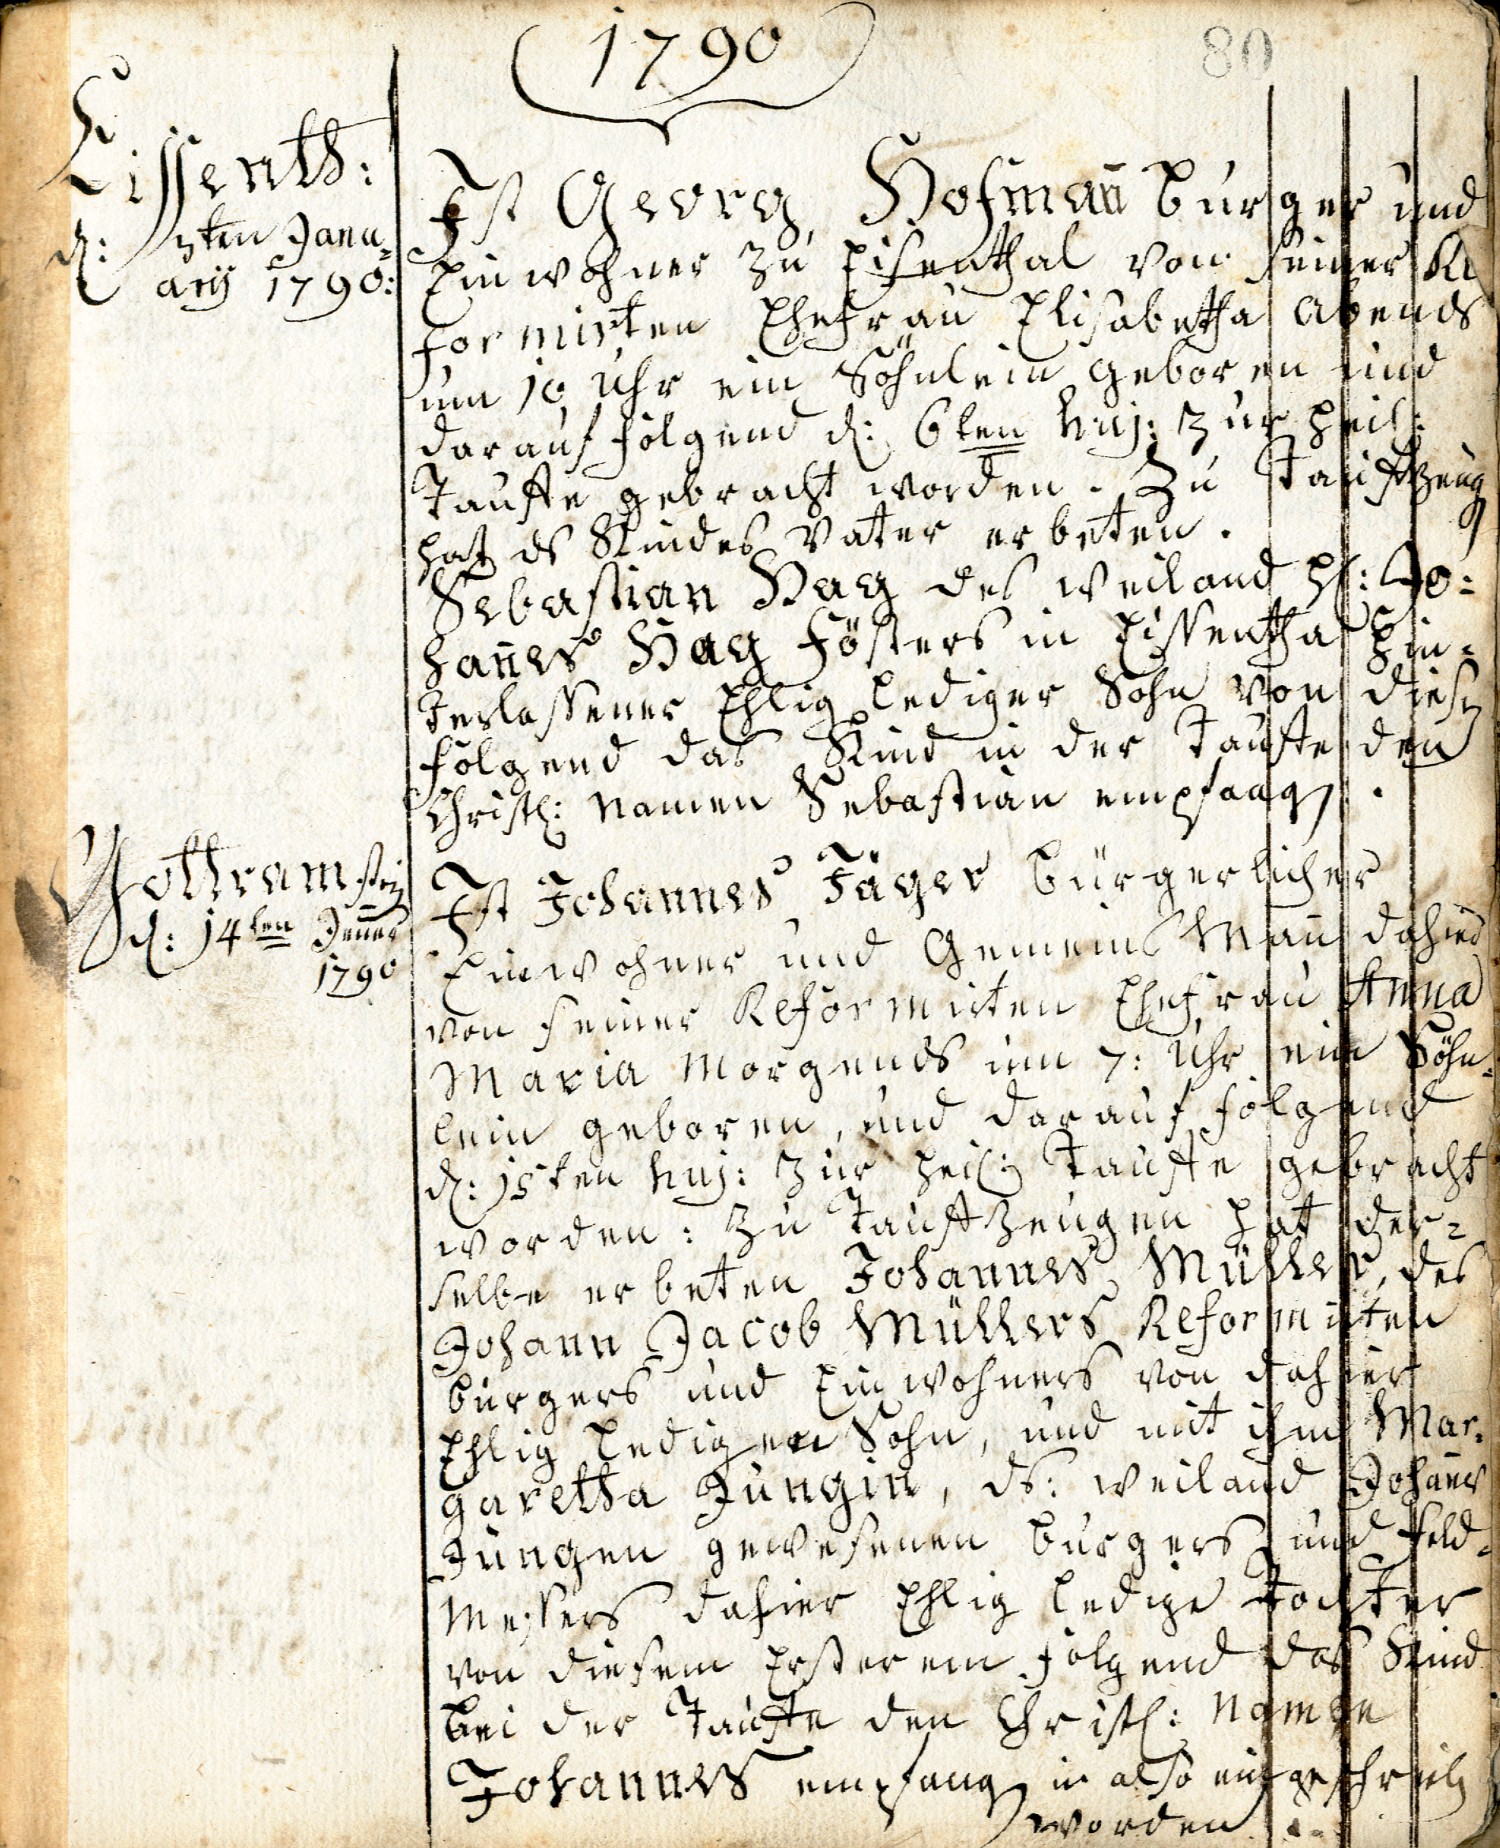 1790
80
Eissenth:
d: 5ten Janu-
arij 1790:
Ist Georg Hofmañ burger und
Einwohner zu Eisenthal von seiner Re
formirten Ehefrau Elisabetha abends
um 10 Uhr ein Söhnlein geboren und
darauf folgend d: 6ten huj: zur heil:
Tauffe gebracht worden. Zu Tauffzeug
hat ds Kindes Vater erbeten.
Sebastian Hag des weiland H: Jo:
hañes Hag Fösters in Eissenthal hin-
terlassener Ehlig lediger Sohn von diesem
folgend das Kind in der Tauffe den
Christl: Namen Sebastian empfang.
Gottramstein
d: 14ten Jener
1790
Ist Johannes Jäger bürgerlicher
Einwohner und Gemeins Mañ dahier
von seiner Reformirten Ehefrau Anna
Maria Morgends um 7: Uhr ein Söhn-
lein geboren, und darauf folgend
d: 15ten huj: zur heil: Tauffe gebracht
worden: Zu Tauffzeugen hat der-
selbe erbeten Johannes Müller, des
Johann Jacob Müllers Reformirten
burgers und Einwohners von dahier
Ehlig ledigen Sohn, und mit ihm Mar-
garetha Jungin, ds: weiland Johañes
Jungen gewesenen burgers und Feld-
Messers dahier Ehlig ledige Tochter
von diesem Ersterem folgend das Kind
bei der Tauffe den Christl: Namen
Johannes empfang u also eingeschrieben
worden.